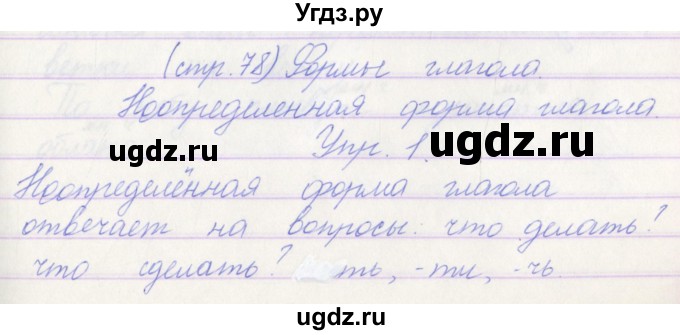 Угдз.ру
(стр. 78) Формы глагола.
Неопределенная форма глагола.
ugdz.ru ugdz.ru
Упр. 1.
Неопределённая форма глагола
отвечает на вопросы: что делать?
что сделать? ть, -ти, -чь.
ugdz.ru ugdz.ru